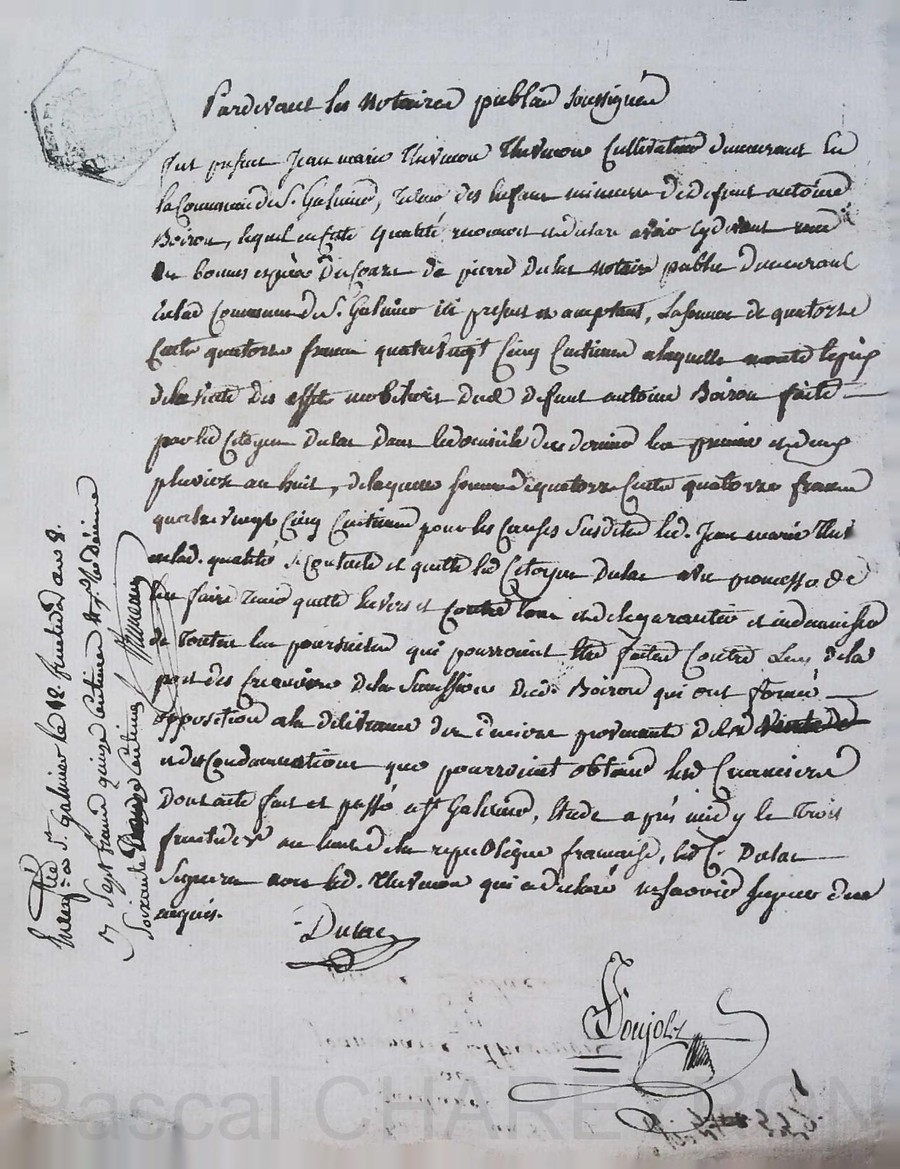 Pardevant les Notaires publics soussignés
fut présent Jean marie Thevenon Thevenon Cultivateur demeurant en
la Commune de St. Galmier, Tuteur des Enfans mineurs de defunt antoine
Boiron, lequel en cette qualité reconnoit et declare avoir cydevant reçu
en bonnes espèces Du Cours de pierre Dulac Notaire public demeurant
en lad Commune de St. Galmier ici présent et acceptant, La somme de quatorze
Cents quatorze francs quatrevingt Cinq Centimes a laquelle monte le prix
de la vente des effets mobiliers dud defunt antoine Boiron faite
par led Citoyen Dulac Dans le domicile de ce dernier les premier et deux
pluviose an huit, de laquelle somme de quatorze Cents quatorze francs
quatre vingt Cinq Centimes pour les Causes Susdites led. Jean marie
en lad. qualité Se Contente et quitte led Citoyen Dulac avec promesse de
l'en faire tenir quitte Envers et Contre tous et de le garantir et indemniser
de Toutes les poursuites qui pourroient être faites Contre Luy de la
part des créanciers de la Succession dud. Boiron qui ont formé
opposition a la délivrance des deniers provenant de lad vente de
et des Condamnations que pourroient obtenir lesd Creanciers
Dont acte fait et passé a St Galmier, Etude après midy le Trois
fructidor an huit de la republique française, led C. Dulac
Signera non led. Thevenon qui a declaré ne savoir signer de ce
requis.
Dulac
Goujolz
St. Galmier le 12. fructidor an 8.
Sept francs quinze Centimes
Soixante Centimes
Pascal CHAREYRON